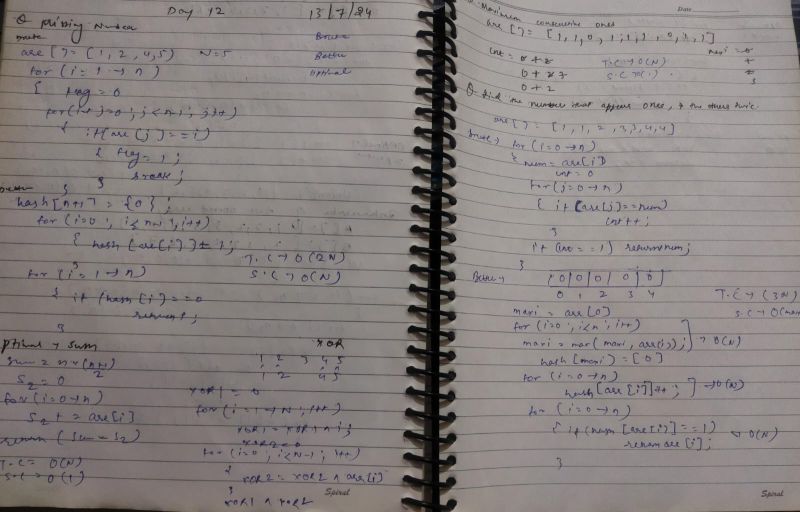 Day 12 13/7/24
Q Missing Number
Brute
Brute
arr[] = {1, 2, 4, 5} N=5
Better
for (i = 1 → n)
Optimal
{ flag = 0
for (int j = 0; j < n-1; j++)
{ if (arr[j] == i)
{ flag = 1;
break;
}
}
Better
hash[n+1] = {0};
for (i=0; i<n-1; i++)
{ hash[arr[i]] = 1;
}
T.C → O(2N)
S.C → O(N)
for (i = 1 → n)
{ if (hash[i] == 0
return i;
}
Optimal → Sum
sum = n*(n+1)
2
S2 = 0
for (i=0→n)
S2 += arr[i]
return (sum - S2)
T.C = O(N)
S.C = O(1)
XOR
1 2 3 4 5
1 2 4 5
XOR1 = 0
for (i = 1 → N; i++)
XOR1 = XOR1 ^ i;
XOR2 = 0
for (i=0; i<N-1; i++)
{
XOR2 = XOR2 ^ arr[i]
}
XOR1 ^ XOR2
Spiral
Date
Q. Maximum consecutive ones
arr[] = [1, 1, 0, 1, 1, 1, 0, 1, 1]
cnt =
maxi =
T.C → O(N)
S.C → O(1)
3
0 + 2
Q. find the number that appears once, & the others twice
arr[] = [1, 1, 2, 3, 3, 4, 4]
Brute → for (i=0→n)
{ num = arr[i]
cnt = 0
for (j = 0→n)
{ if (arr[j] == num)
cnt++;
}
if (cnt == 1) return num;
}
Better → |0|0|0|0|0|
0 1 2 3 4
T.C → (3N)
maxi = arr[0]
for (i=0; i<n; i++)
maxi = max(maxi, arr[i]); → O(N)
hash[maxi] = [0]
for (i=0→n)
hash[arr[i]]++; → O(N)
for (i=0→n)
{ if (hash[arr[i]] == 1)
return arr[i]; → O(N)
}
Spiral